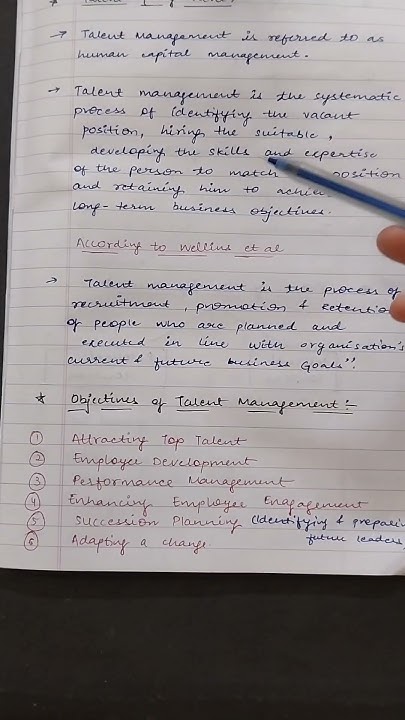 → Talent Management is referred to as
human capital management.
→ Talent management is the systematic
process of identifying the vacant
position, hiring the suitable,
developing the skills and expertise
of the person to match position
and retaining him to
long-term business objectives.
According to Wellins et al
→ Talent management is the process of
recruitment, promotion &
of people who are planned and
executed in line with organisation's
current & future business Goals".
* Objectives of Talent Management :-
① Attracting Top Talent
② Employee Development
③ Performance Management
④ Enhancing Employee Engagement
⑤ Succession Planning (Identifying &
future leaders)
⑥ Adapting a change.